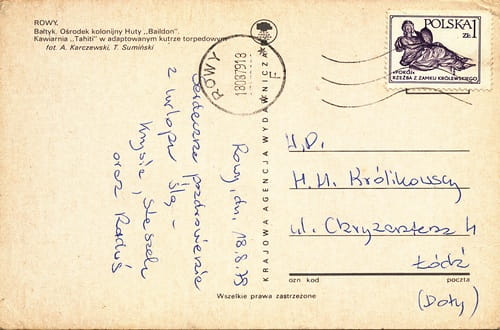 ROWY.
Bałtyk. Ośrodek kolonijny Huty „Baildon".
Kawiarnia „Tahiti" w adaptowanym kutrze torpedowym
fot. A. Karczewski, T. Sumiński
ROWY
18087918
F
POLSKA
Zł 1
«POKÓJ»
RZEŹBA Z ZAMKU KRÓLEWSKIEGO
KRAJOWA AGENCJA WYDAWNICZA
Rowy, dn. 18.8.79
Serdeczne pozdrowienia
z urlopu ślą –
Krysia, Staszek
oraz Raduś
W.P.
H.H. Królikowscy
ul. 4
Łódź
ozn kod
poczta
(Doły)
Wszelkie prawa zastrzeżone